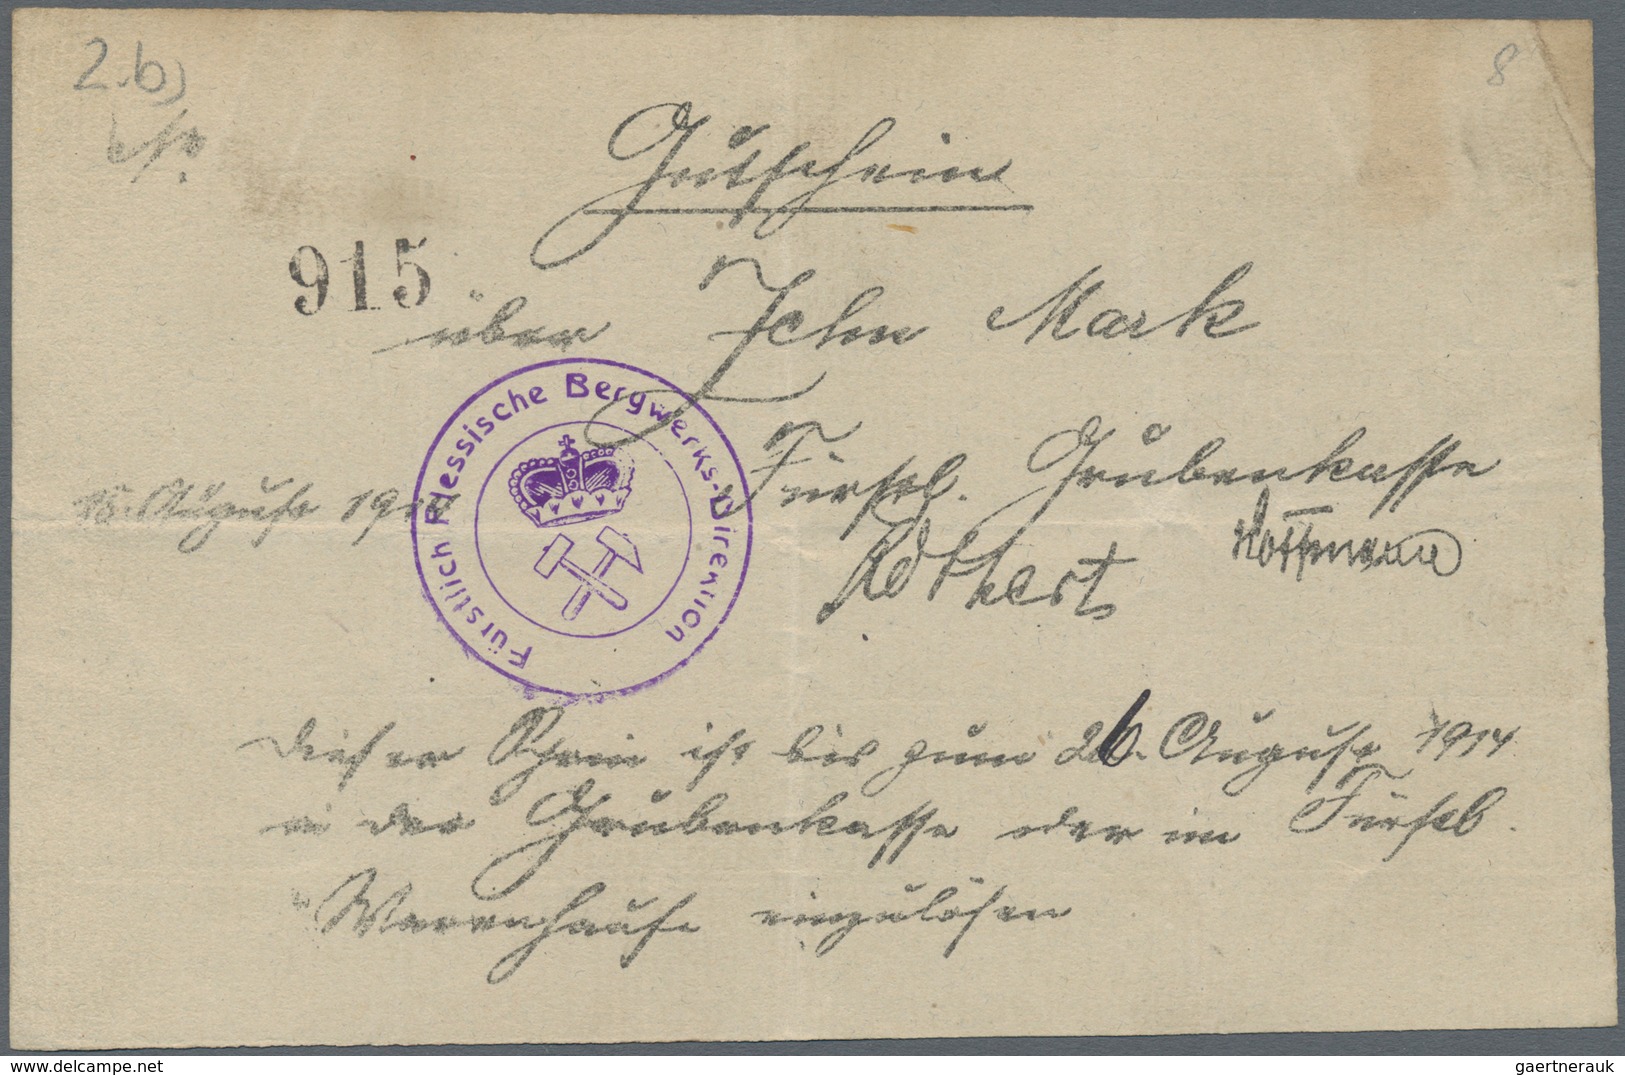 2.b)
8
Gutschein
915
über Zehn Mark
Fürstlich Plessische Bergwerks-Direktion
Fürstl. Grubenkasse
August 1914
Rothert Hoffmann
Dieser Schein ist bis zum 26. August 1914
in der Grubenkasse oder im Fürstl.
Warenhause einzulösen
www.delcampe.net
gaertnerauk